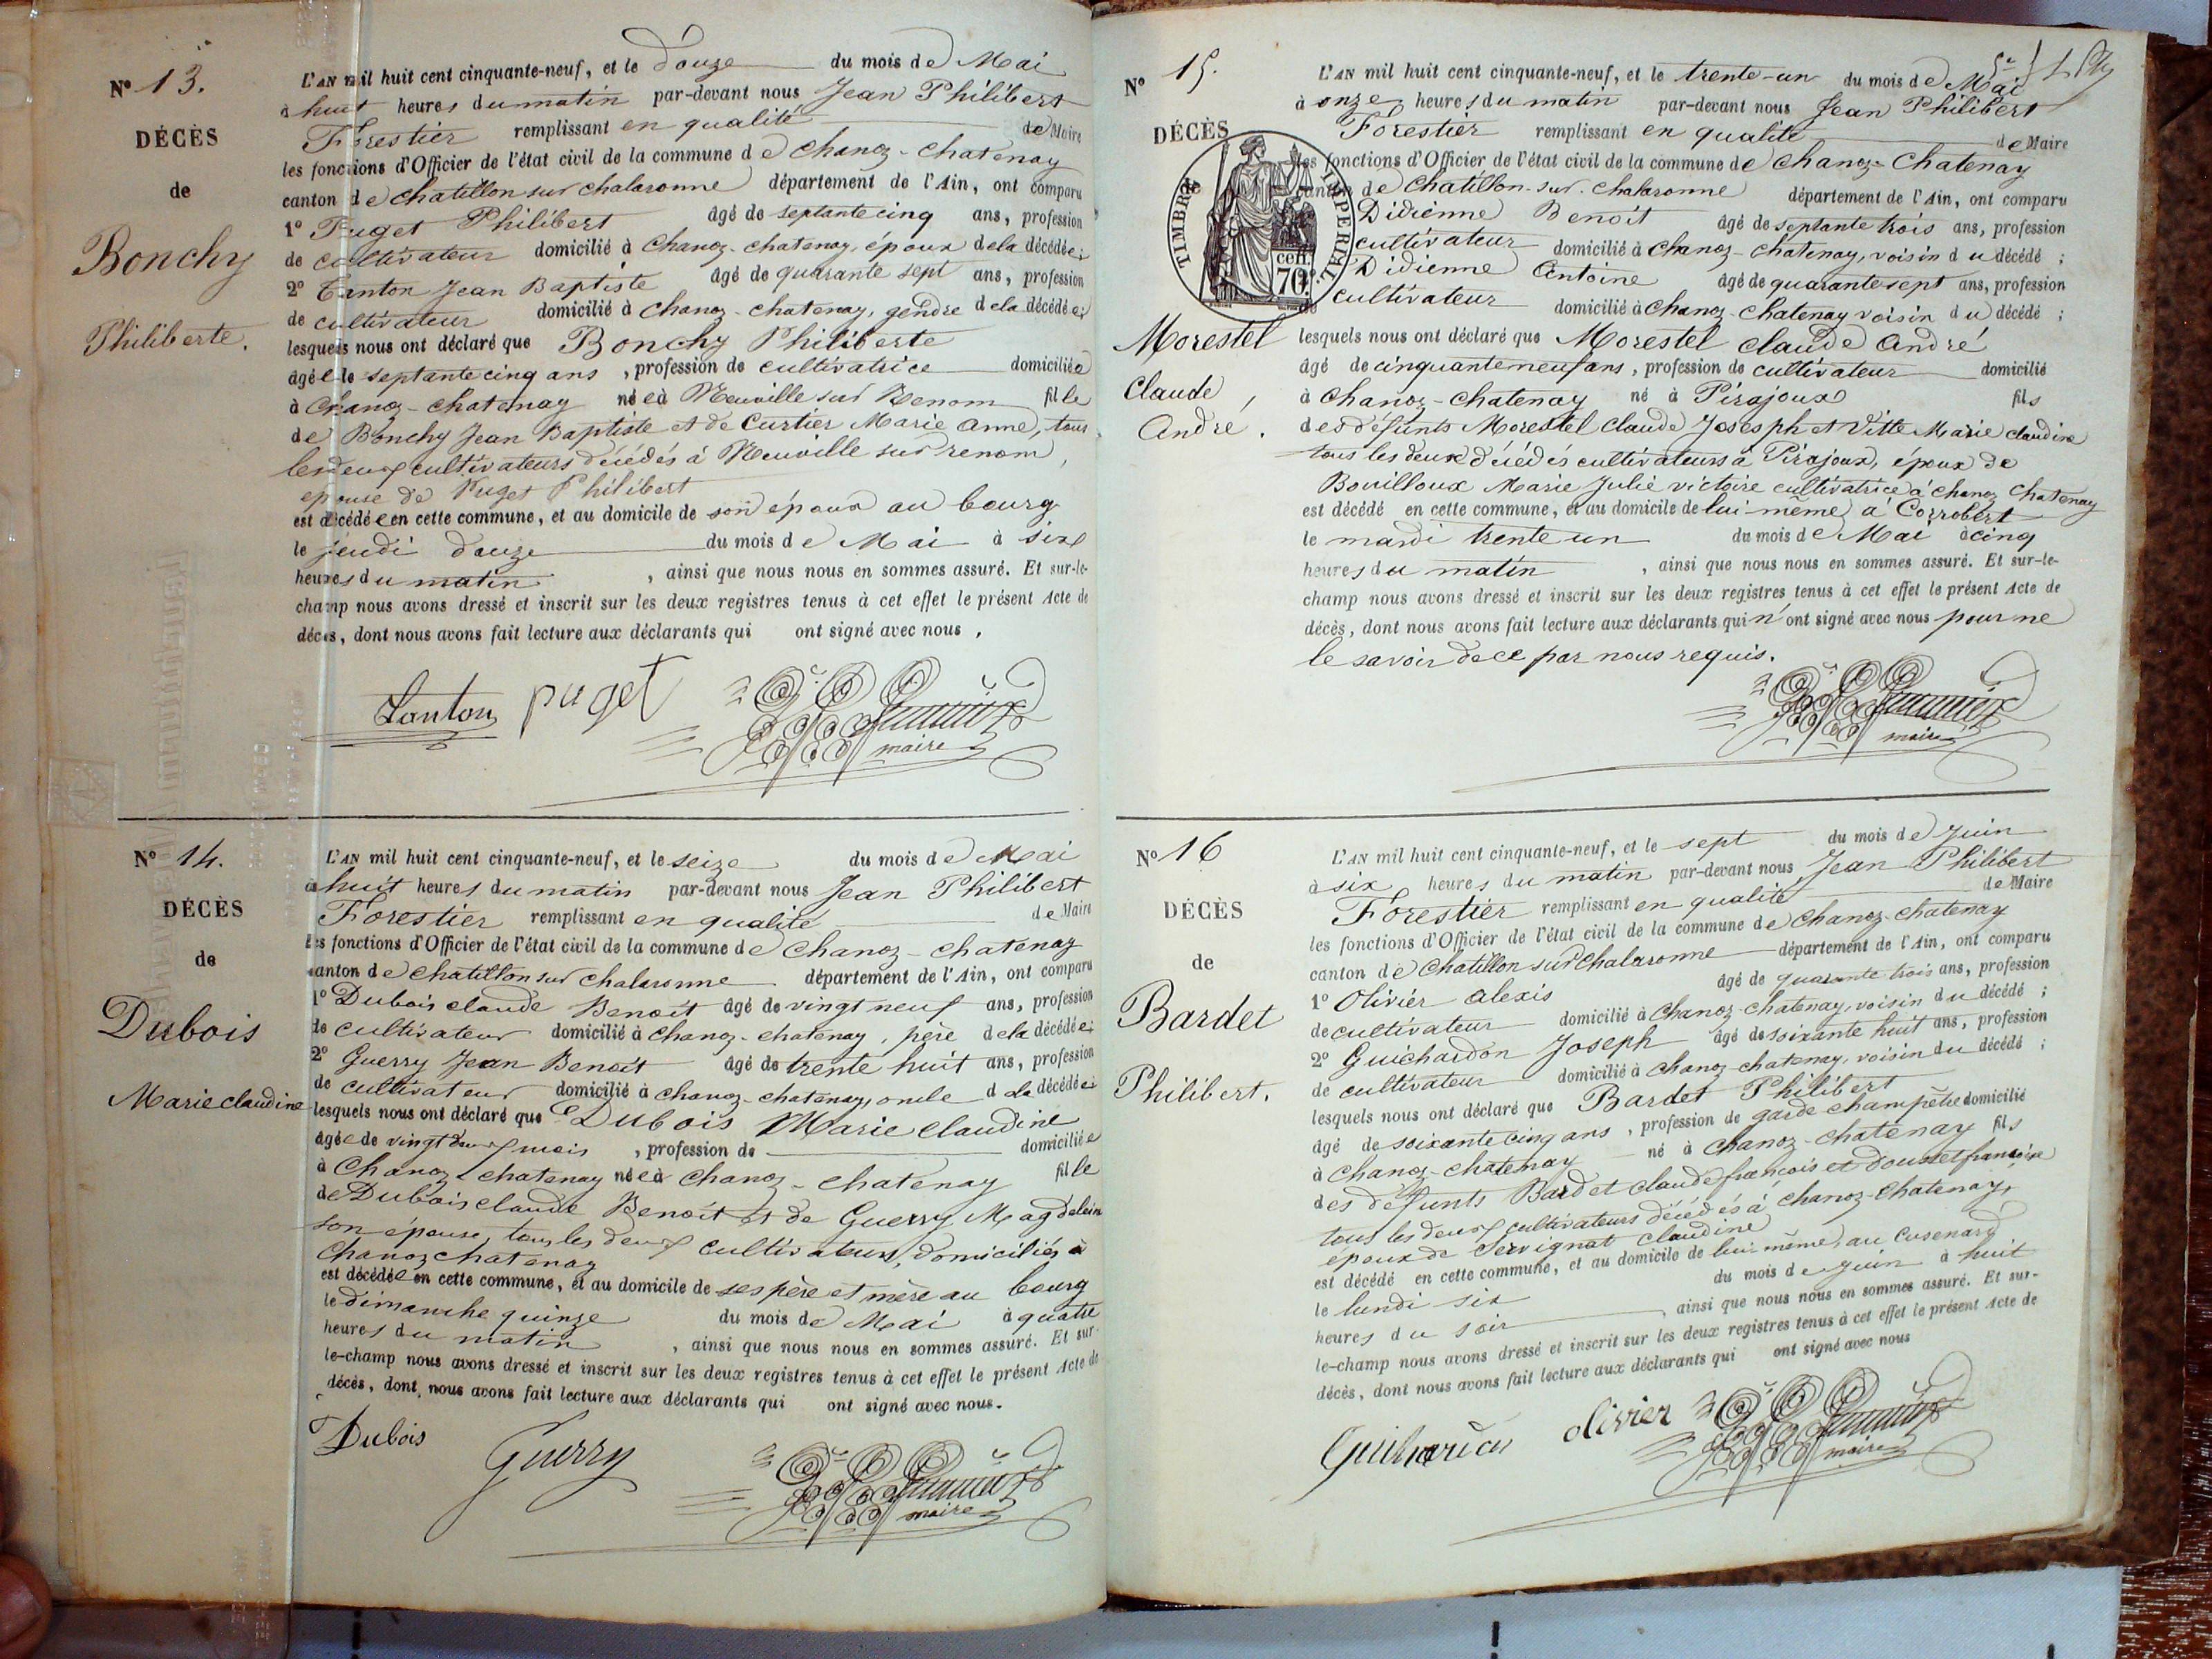 Nº 13.
DÉCÈS
de
Bonchy
Philiberte.
L'AN mil huit cent cinquante-neuf, et le douze du mois de Mai
à huit heures du matin par-devant nous Jean Philibert
Forestier remplissant en qualité de Maire
les fonctions d'Officier de l'état civil de la commune de Chanoz-Chatenay
canton de Chatillon sur Chalaronne département de l'Ain, ont comparu
1º Puget Philibert âgé de septante cinq ans, profession
de cultivateur domicilié à Chanoz-Chatenay, époux de la décédée;
2º Tanton Jean Baptiste âgé de quarante sept ans, profession
de cultivateur domicilié à Chanoz-Chatenay, gendre de la décédée;
lesquels nous ont déclaré que Bonchy Philiberte
âgée de septante cinq ans, profession de cultivatrice domiciliée
à Chanoz-Chatenay née à Neuville sur Renom fille
de Bonchy Jean Baptiste et de Curtier Marie Anne, tous
les deux cultivateurs décédés à Neuville sur renom,
epouse de Puget Philibert
est décédée en cette commune, et au domicile de son époux au bourg
le jeudi douze du mois de Mai à six
heures du matin, ainsi que nous nous en sommes assuré. Et sur-le-
champ nous avons dressé et inscrit sur les deux registres tenus à cet effet le présent Acte de
décès, dont nous avons fait lecture aux déclarants qui ont signé avec nous.
Tanton puget
maire
Nº 14.
DÉCÈS
de
Dubois
Marie claudine
L'AN mil huit cent cinquante-neuf, et le seize du mois de Mai
à huit heures du matin par-devant nous Jean Philibert
Forestier remplissant en qualité de Maire
les fonctions d'Officier de l'état civil de la commune de Chanoz-Chatenay
canton de Chatillon sur Chalaronne département de l'Ain, ont comparu
1º Dubois claude Benoit âgé de vingt neuf ans, profession
de cultivateur domicilié à Chanoz-chatenay, père de la décédée;
2º Guerry Jean Benoit âgé de trente huit ans, profession
de cultivateur domicilié à chanoz-chatenay, oncle d la décédée;
lesquels nous ont déclaré que Dubois Marie claudine
âgée de vingt deux mois, profession de domiciliée
à Chanoz-chatenay née à Chanoz-chatenay fille
de Dubois claude Benoit et de Guerry Magdeleine
son épouse, tous les deux cultivateurs, domiciliés à
Chanoz chatenay
est décédée en cette commune, et au domicile de ses père et mère au bourg
le dimanche quinze du mois de Mai à quatre
heures du matin, ainsi que nous nous en sommes assuré. Et sur-
le-champ nous avons dressé et inscrit sur les deux registres tenus à cet effet le présent Acte de
décès, dont nous avons fait lecture aux déclarants qui ont signé avec nous.
Dubois Guerry
maire
Nº 15.
DÉCÈS
TIMBRE IMPERIAL
70 cen.
Morestel
Claude,
André.
L'AN mil huit cent cinquante-neuf, et le trente-un du mois de Mai
à onze heures du matin par-devant nous Jean Philibert
Forestier remplissant en qualité de Maire
les fonctions d'Officier de l'état civil de la commune de Chanoz-Chatenay
canton de Chatillon-sur-Chalaronne département de l'Ain, ont comparu
Didienne Benoit âgé de septante trois ans, profession
cultivateur domicilié à Chanoz-Chatenay, voisin du décédé;
Didienne Antoine âgé de quarante sept ans, profession
cultivateur domicilié à Chanoz-Chatenay voisin du décédé;
lesquels nous ont déclaré que Morestel claude André
âgé de cinquante neuf ans, profession de cultivateur domicilié
à Chanoz-Chatenay né à Pirajoux fils
des défunts Morestel Claude Josesph et Vitte Marie claudine
tous les deux décédés cultivateurs à Pirajoux, époux de
Bouilloux Marie Julie victoire cultivatrice à chanoz Chatenay
est décédé en cette commune, et au domicile de lui même à Corrobert
le mardi trente un du mois de Mai à cinq
heures du matin, ainsi que nous nous en sommes assuré. Et sur-le-
champ nous avons dressé et inscrit sur les deux registres tenus à cet effet le présent Acte de
décès, dont nous avons fait lecture aux déclarants qui n'ont signé avec nous pour ne
le savoir de ce par nous requis.
maire
Nº 16
DÉCÈS
de
Bardet
Philibert.
L'AN mil huit cent cinquante-neuf, et le sept du mois de Juin
à six heures du matin par-devant nous Jean Philibert
Forestier remplissant en qualité de Maire
les fonctions d'Officier de l'état civil de la commune de Chanoz-chatenay
canton de Chatillon sur Chalaronne département de l'Ain, ont comparu
1º Olivier alexis âgé de quarante trois ans, profession
de cultivateur domicilié à Chanoz-chatenay, voisin du décédé;
2º Guichardon Joseph âgé de soixante huit ans, profession
de cultivateur domicilié à Chanoz-chatenay, voisin du décédé;
lesquels nous ont déclaré que Bardet Philibert
âgé de soixante cinq ans, profession de garde champêtre domicilié
à Chanoz-chatenay né à Chanoz-chatenay fils
des défunts Bardet claude françois et Dousset françoise
tous les deux cultivateurs décédés à Chanoz-chatenay,
epoux de Servignat claudine
est décédé en cette commune, et au domicile de lui-même, au Cusenard
le lundi six du mois de juin à huit
heures du soir, ainsi que nous nous en sommes assuré. Et sur-
le-champ nous avons dressé et inscrit sur les deux registres tenus à cet effet le présent Acte de
décès, dont nous avons fait lecture aux déclarants qui ont signé avec nous
olivier
maire